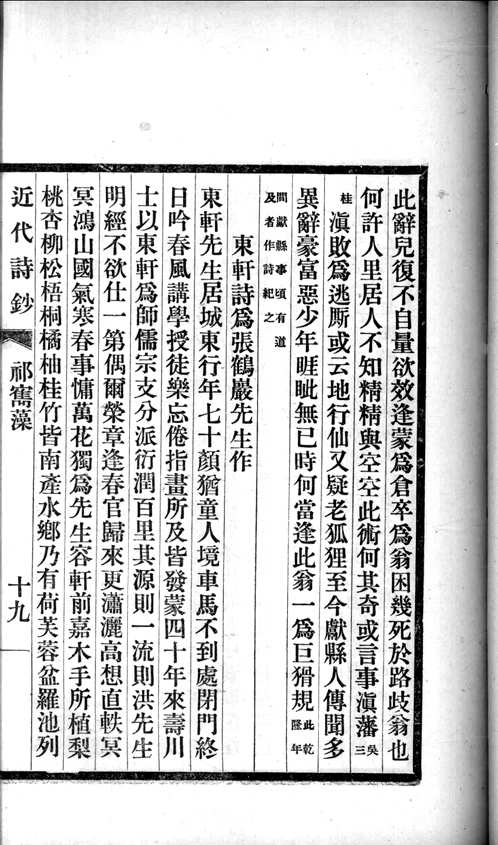 此辭兒復不自量欲效逢蒙爲倉卒爲翁困幾死於路歧翁也
何許人里居人不知精精與空空此術何其奇或言事滇藩吳三
桂滇敗爲逃厮或云地行仙又疑老狐狸至今獻縣人傳聞多
異辭豪富惡少年睚眦無已時何當逢此翁一爲巨猾規此乾隆年
間獻縣事頃有道及者作詩紀之
東軒詩爲張鶴巖先生作
東軒先生居城東行年七十顏猶童人境車馬不到處閉門終
日吟春風講學授徒樂忘倦指畫所及皆發蒙四十年來壽川
士以東軒爲師儒宗支分派衍潤百里其源則一流則洪先生
明經不欲仕一第偶爾榮章逢春官歸來更瀟灑高想直軼冥
冥鴻山國氣寒春事慵萬花獨爲先生容軒前嘉木手所植梨
桃杏柳松梧桐橘柚桂竹皆南產水鄉乃有荷芙蓉盆羅池列
近代詩鈔 祁寯藻 十九